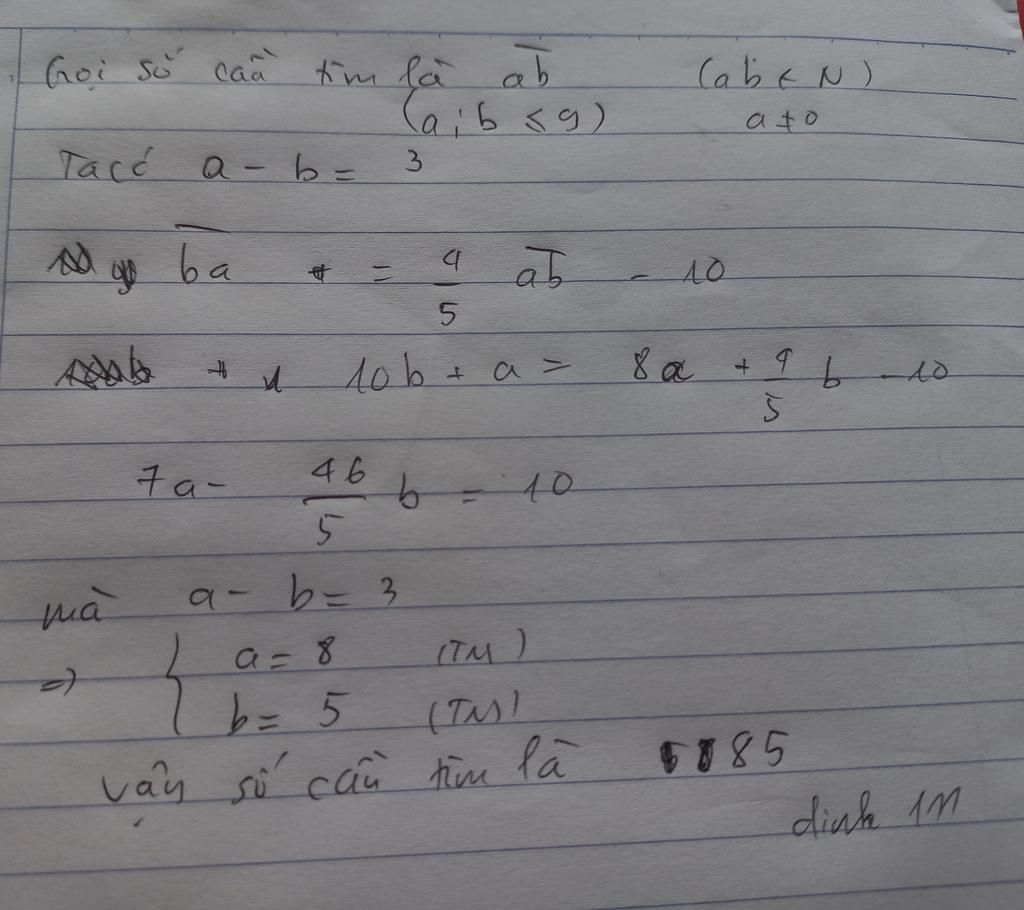 Gọi số cần tìm là ab̅ (ab ∈ N)
(a; b ≤ 9) a ≠ 0
Ta có a - b = 3
b̅a̅ = 4/5 a̅b̅ - 10
10b + a = 8a + 4/5 b - 10
7a - 46/5 b = 10
mà a - b = 3
=> { a = 8 (TM)
b = 5 (TM)
Vậy số cần tìm là 85